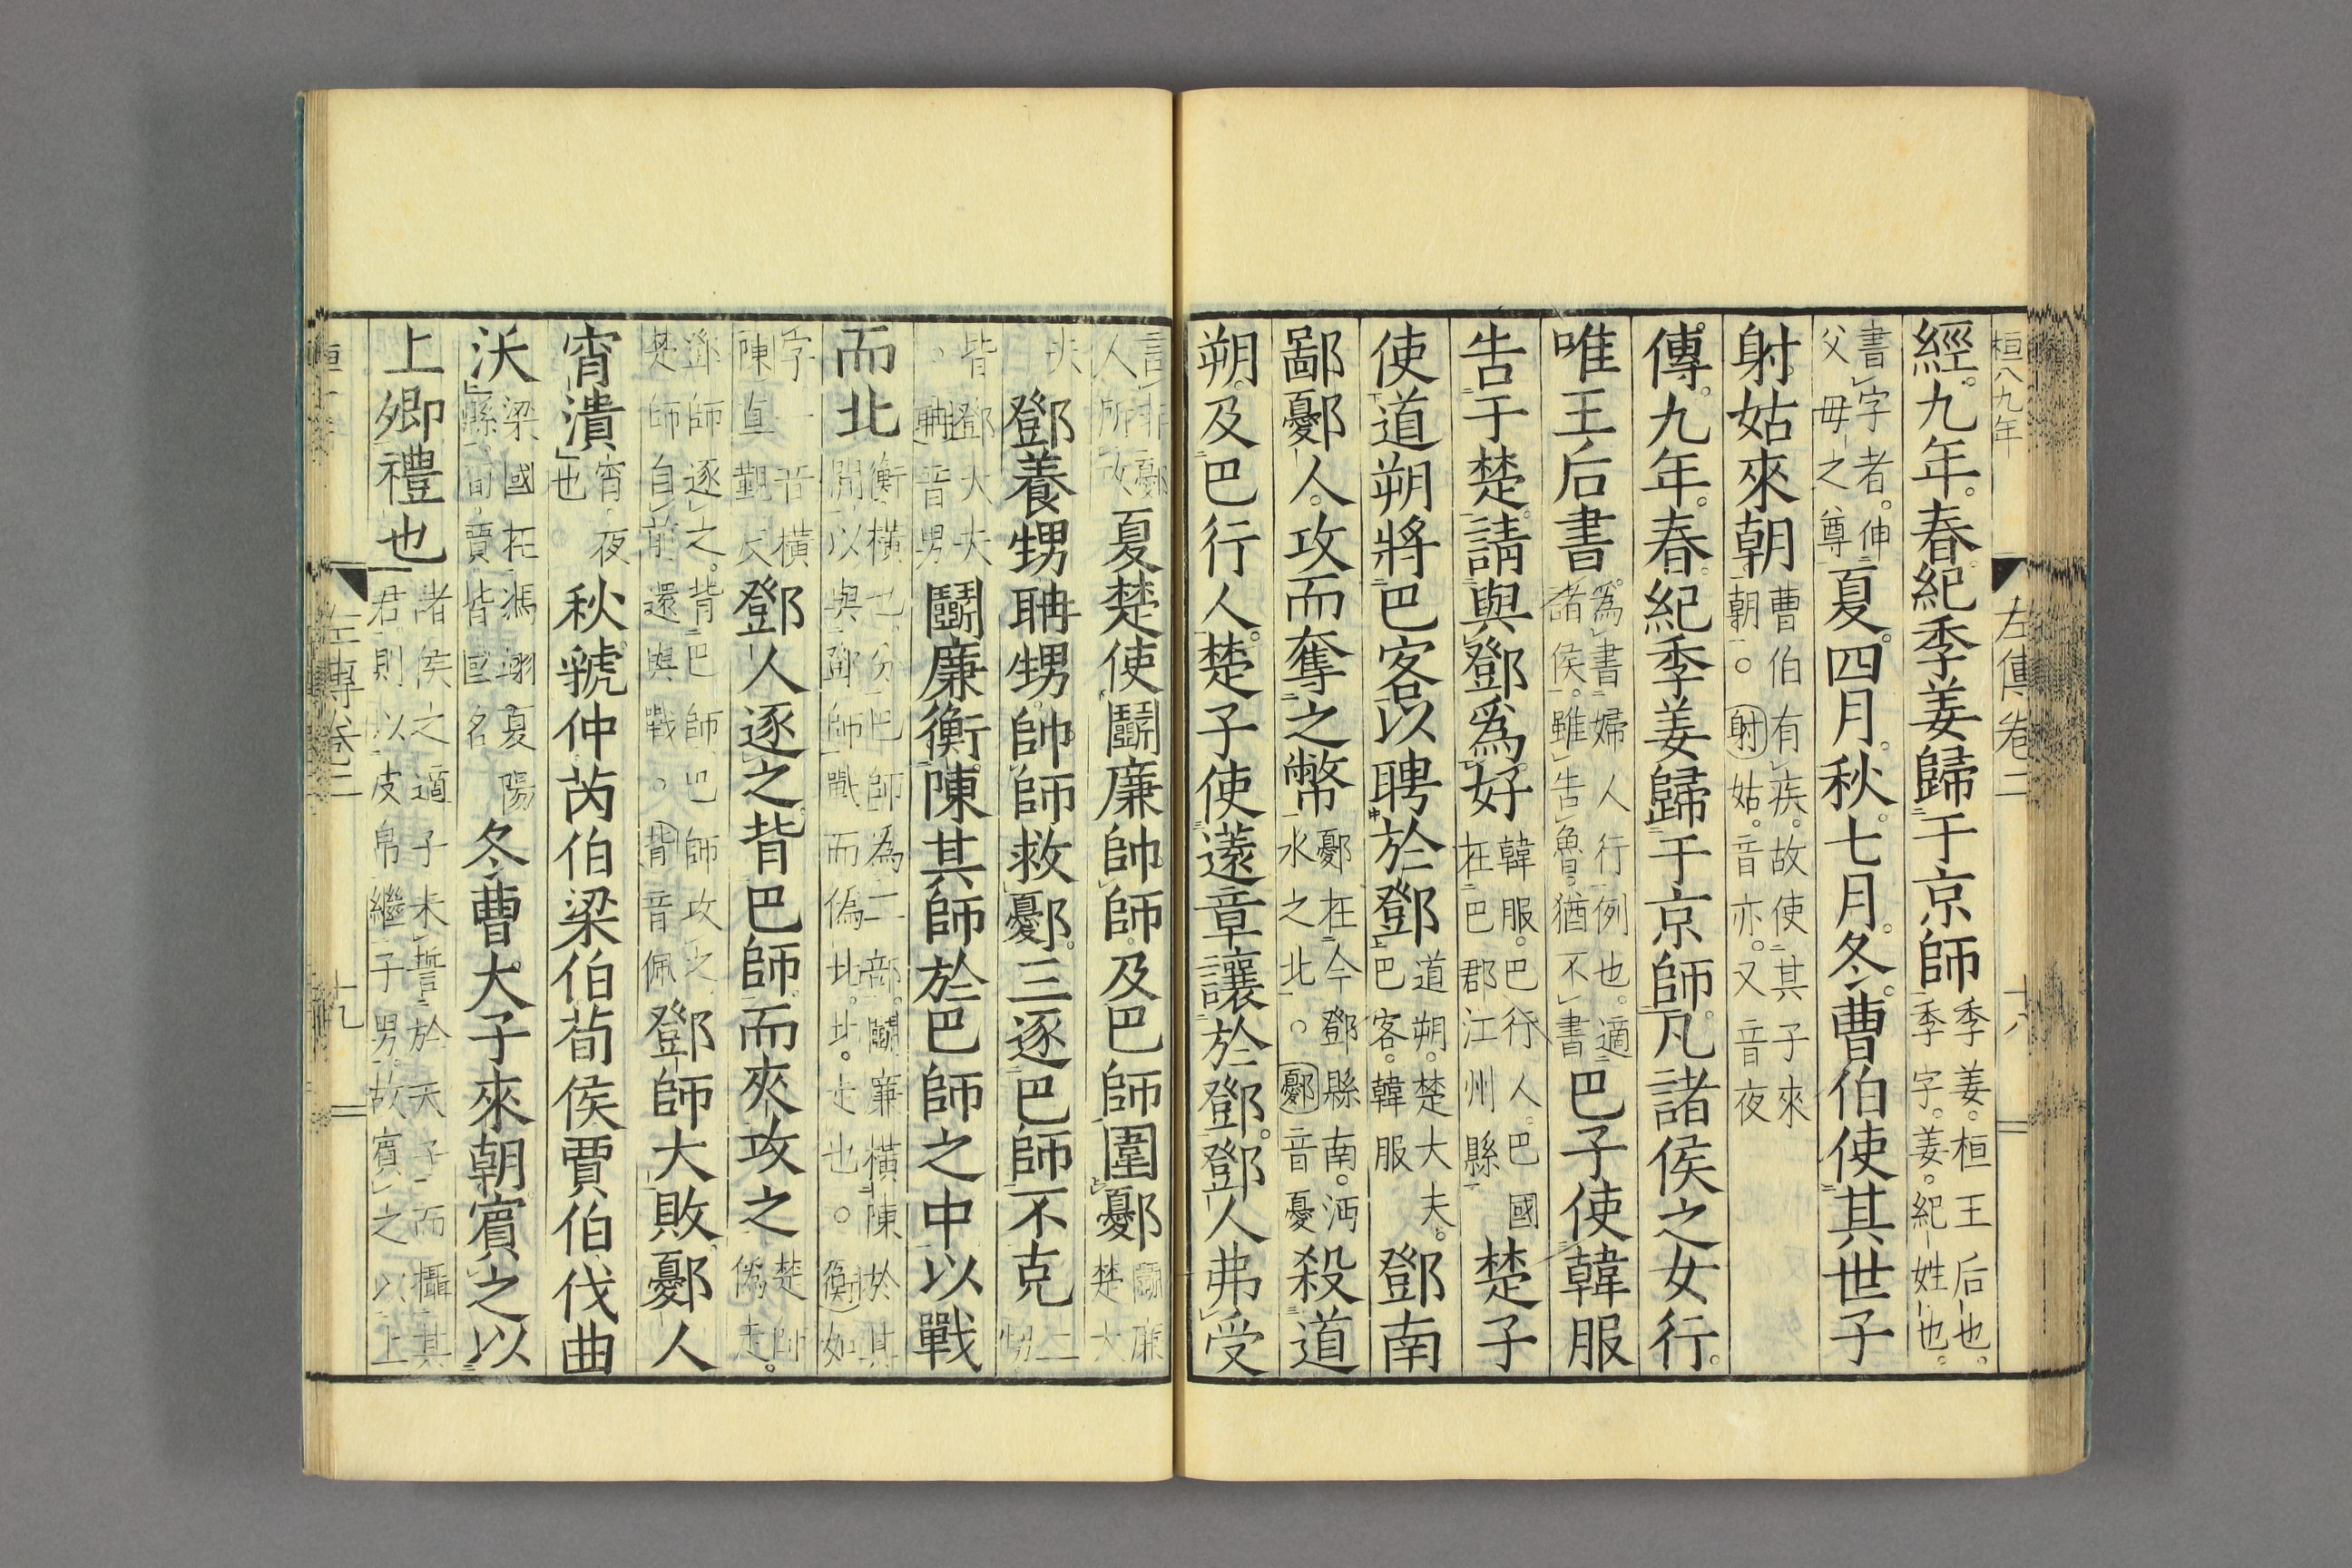 桓八九年
左傳卷二
經。九年。春。紀季姜歸于京師 季姜。桓王后也。季字。姜。紀姓也。
書字者。伸父母之尊 夏。四月。秋。七月。冬。曹伯使其世子
射姑來朝 曹伯有疾。故使其子來朝。○射姑。音亦。又音夜
傳。九年。春。紀季姜歸于京師。凡諸侯之女行。
唯王后書 爲書婦人行例也。適諸侯。雖告魯。猶不書 巴子使韓服
告于楚。請與鄧爲好 韓服。巴行人。巴國在巴郡江州縣 楚子
使道朔將巴客以聘於鄧 道朔。楚大夫。巴客。韓服 鄧南
鄙鄾人。攻而奪之幣 鄾在今鄧縣南。沔水之北。○鄾音憂 殺道
朔。及巴行人。楚子使薳章讓於鄧。鄧人弗受
言非鄾人所攻 夏楚使鬭廉帥師。及巴師圍鄾 鬭廉楚大
夫 鄧養甥聃甥。帥師救鄾。三逐巴師。不克 二甥
皆鄧大夫。聃音男 鬭廉衡陳其師於巴師之中以戰
而北 衡橫也。分巴師爲二部。鬭廉橫陳於其間以與鄧師戰而僞北。北。走也。○衡如
字一音橫陳直覲反 鄧人逐之。背巴師。而夾攻之 楚師僞走。
鄧師逐之。背巴師巴師攻之。楚師自前還與戰。○背音佩 鄧師大敗鄾人
宵潰 宵。夜也 秋。虢仲芮伯梁伯荀侯賈伯伐曲
沃 梁國在馮翊夏陽縣。荀。賈皆國名 冬曹大子來朝。賓之以
上卿禮也 諸侯之適子未誓於天子而攝其君。則以皮帛繼子男。故賓之以上
左傳卷二
十九